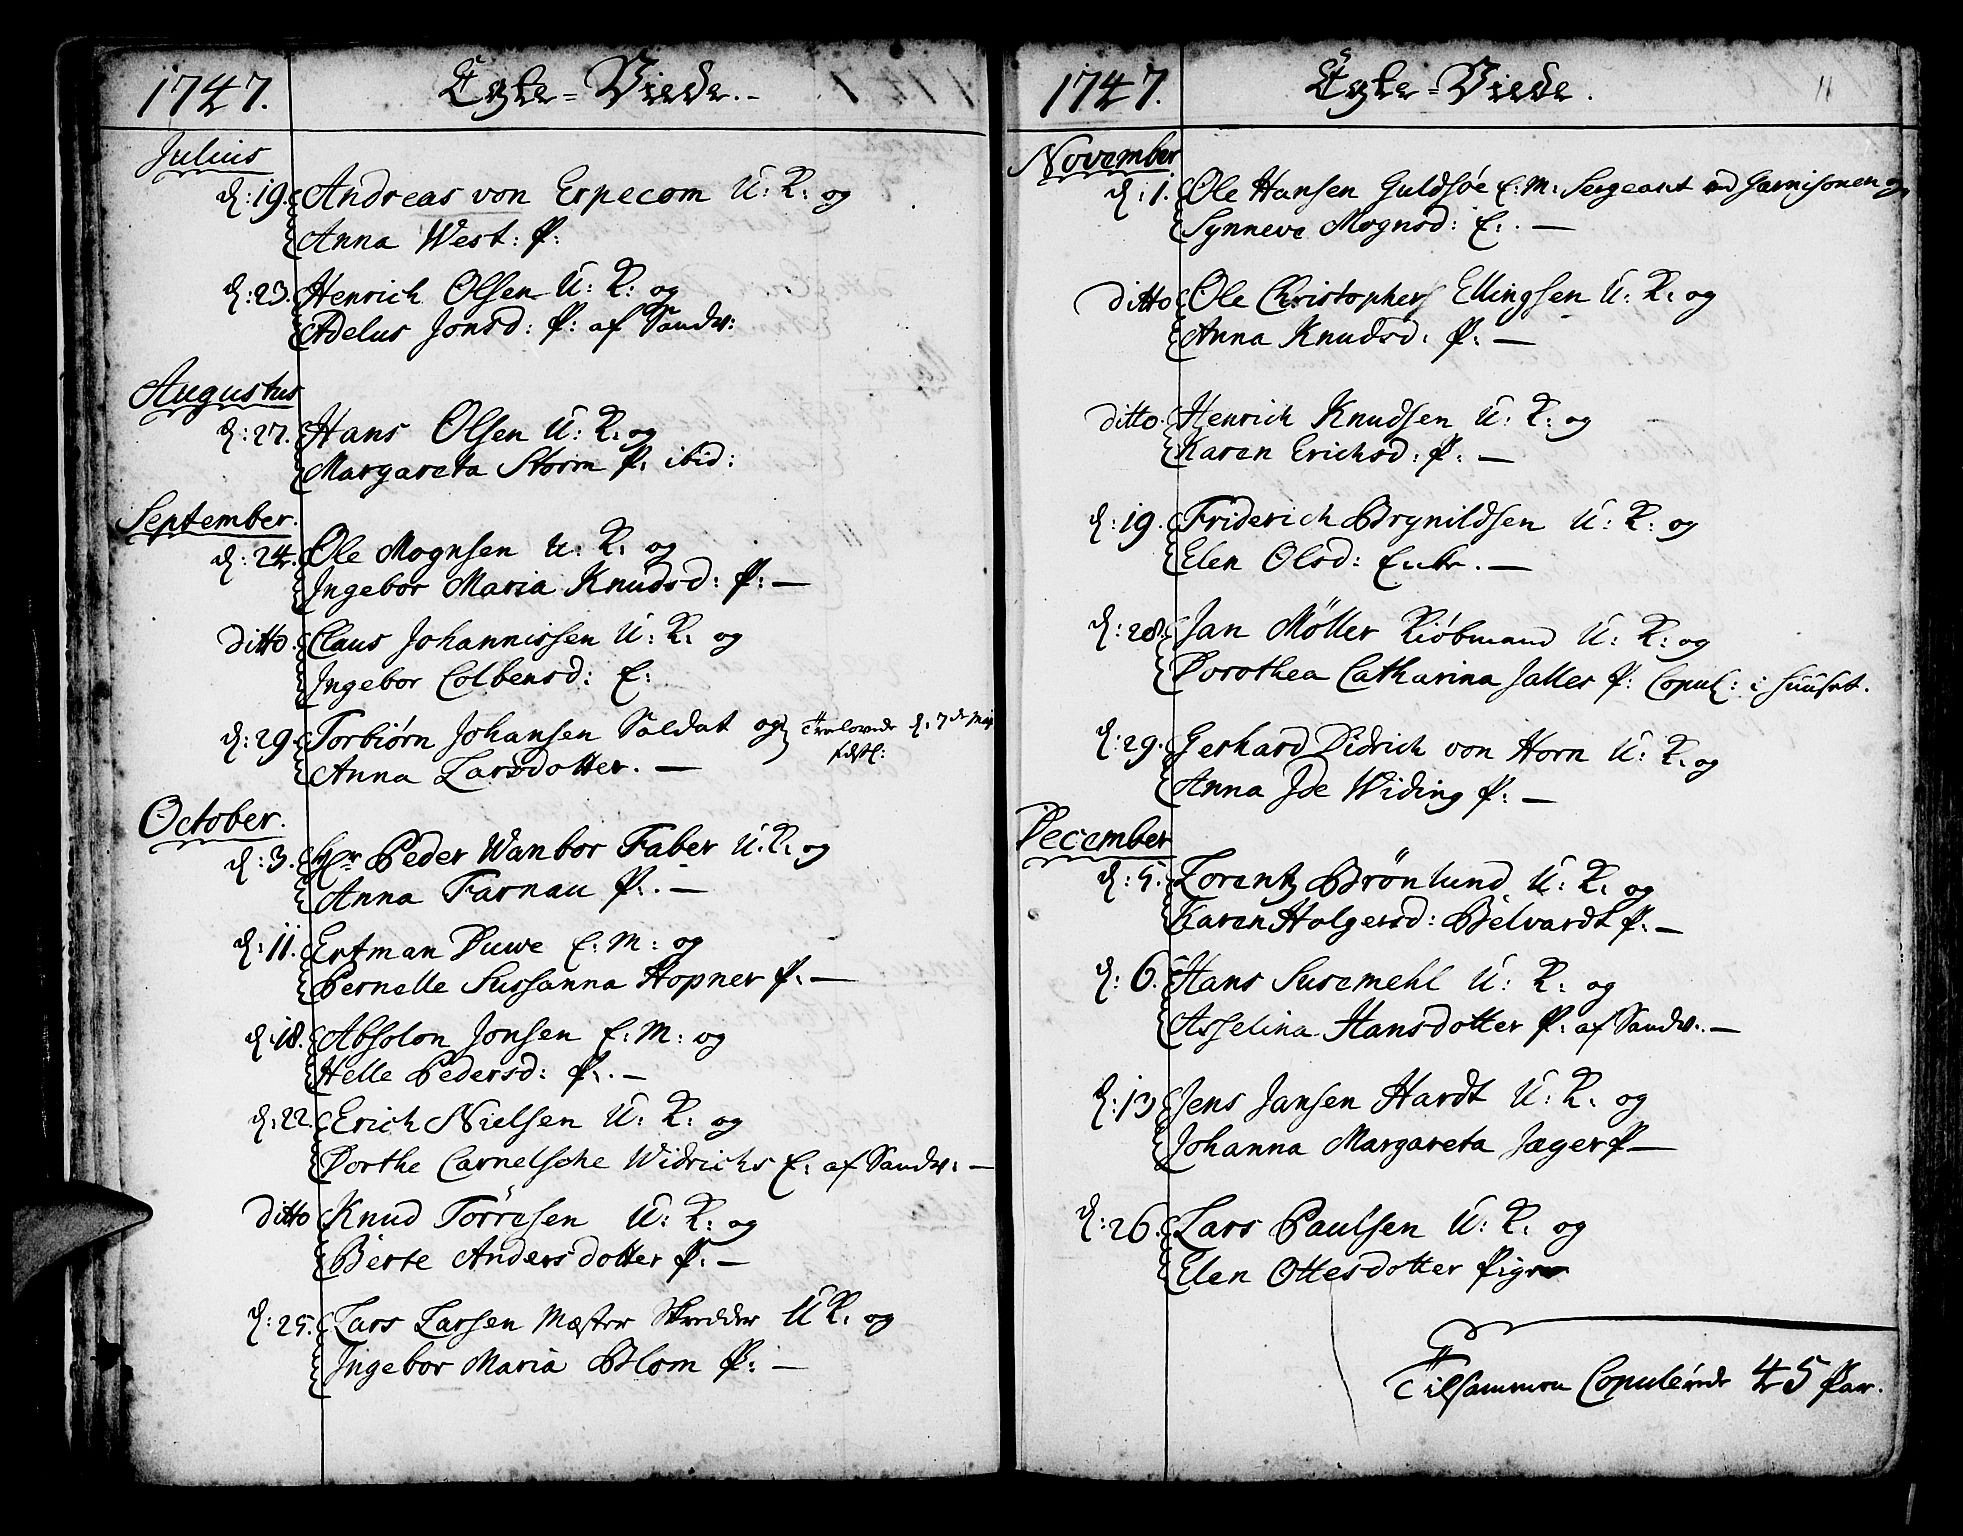 1747. Ægte-Viede.
Julius
d: 19. Andreas von Erpecom U: K: og
Anna West: P:
d: 23. Henrich Olsen U: K: og
Adelus Jonsd: P: af Sandv:
Augustus
d: 27. Hans Olsen U: K: og
Margareta Storm P. ibid:
September.
d: 24. Ole Mognsen U: K. og
Ingebor Maria Knudsd: P: —
ditto. Claus Johannissen U: K: og
Ingebor Colbensd: E:
d: 29. Torbiørn Johansen Soldat og Trolovede d. 7de Maij
Anna Larsdotter. — sidstl:
October.
d: 3. Hr Peder Wanbor Faber U. K. og
Anna Farnau P. . —
d: 11. Ertman Duwe E. M: og
Pernelle Sussanna Hopner P. —
d: 18. Absolon Jonsen E. M: og
Helle Pedersd: P. . —
d: 22. Erich Nielsen U: K: og
Dorthe Carnelsche Widrichs E. af Sandv: —
ditto Knud Törresen U: K: og
Berte Andersdotter P. —
d: 25. Lars Larsen Mæster Skredder U K. og
Ingebor Maria Blom P: —
1747. Ægte-Viede. 11
November
d: 1. Ole Hansen Guldsøe E: M: Sergeant ved Garnisonen og
Synneve Mognsd: E: . —
ditto Ole Christophers Ellingsen U: K: og
Anna Knudsd: P: —
ditto. Henrich Knudsen U: K: og
Karen Erichsd: P: —
d: 19. Friderich Brynildsen U: K: og
Elen Olsd: Enke. —
d: 28. Jan Möller Kiøbmand U: K: og
Dorothea Catharina Jalles P: Copul: i Huuset.
d: 29. Gerhard Didrich von Horn U: K. og
Anna Ide Widing P: —
December
d: 5. Lorentz Brönlund U: K. og
Karen Holgersd: Belvardt P. —
d: 6. Hans Susemehl U: K: og
Asselina Hansdotter P: af Sandv. —
d: 13 Jens Jansen Hardt U: K. og
Johanna Margareta Jæger P —
d: 26. Lars Paulsen U: K: og
Elen Ottesdotter Pige
Tilsammen Copulerede 45 Par.